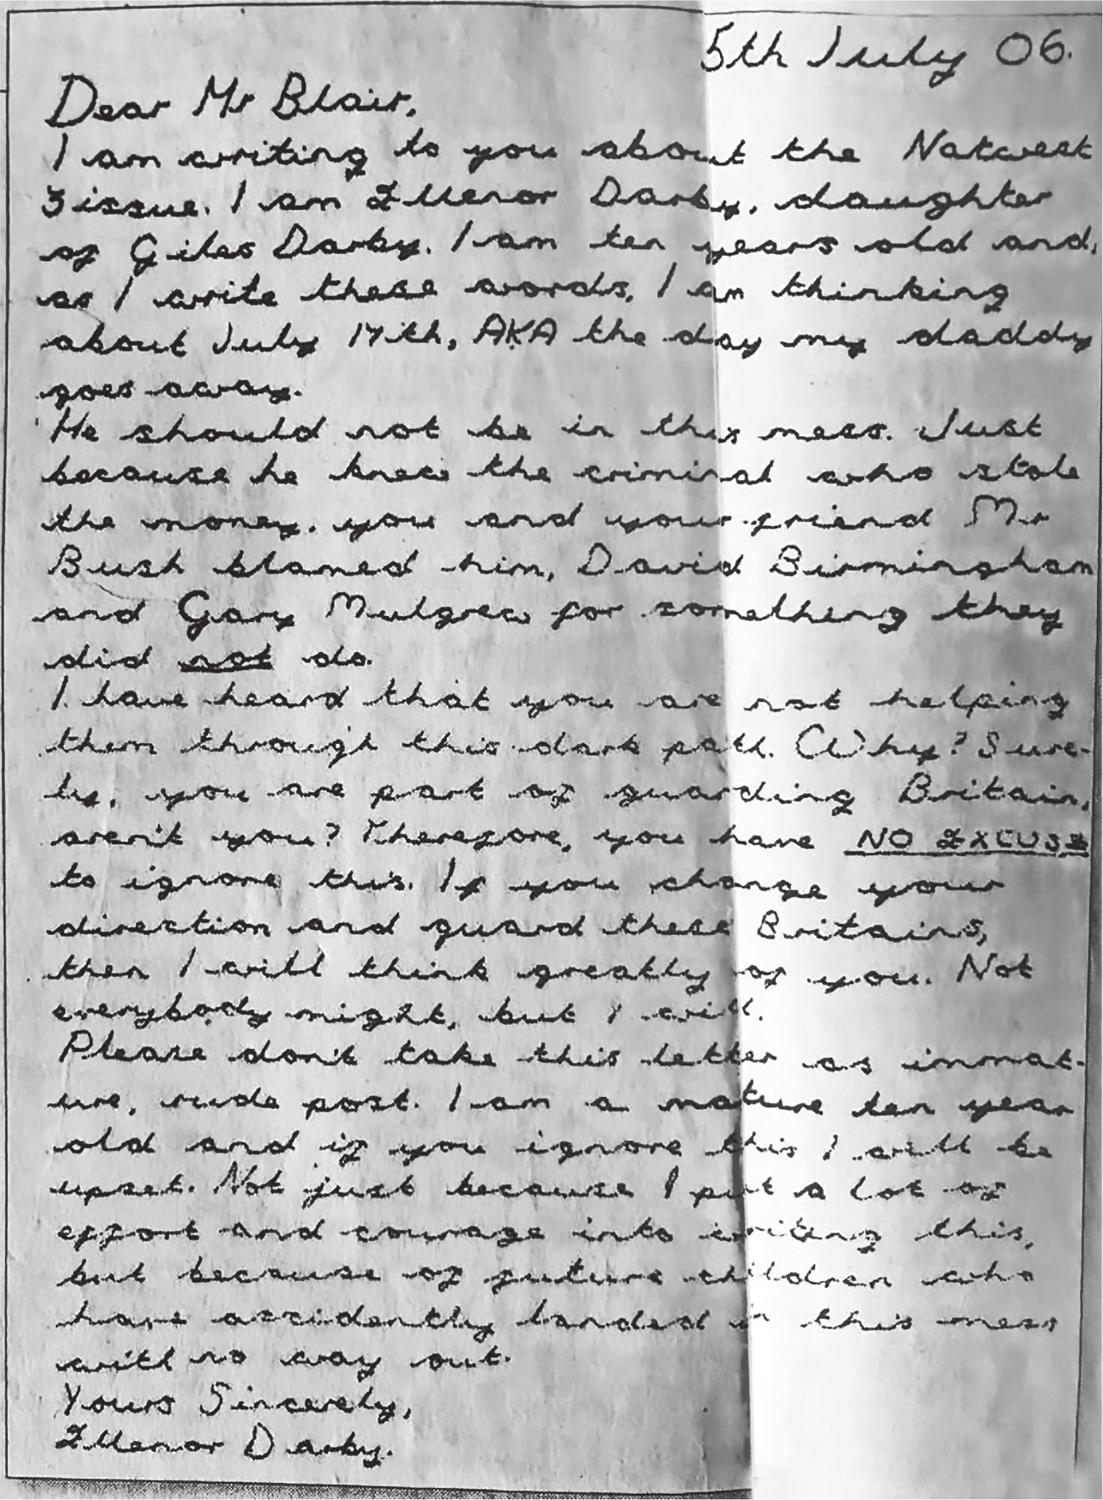 5th July 06.
Dear Mr Blair,
I am writing to you about the Natwest
3 issue. I am Ellenor Darby, daughter
of Giles Darby. I am ten years old and,
as I write these words, I am thinking
about July 17th, AKA the day my daddy
goes away.
He should not be in this mess. Just
because he knew the criminal who stole
the money, you and your friend Mr
Bush blamed him, David Birmingham
and Gary Mulgrew for something they
did not do.
I have heard that you are not helping
them through this dark path. Why? Sure-
ly, you are part of guarding Britain,
aren't you? Therefore, you have NO EXCUSE
to ignore this. If you change your
direction and guard these Britains,
then I will think greatly of you. Not
everybody might, but I will.
Please don't take this letter as immat-
ure, rude post. I am a mature ten year
old and if you ignore this I will be
upset. Not just because I put a lot of
effort and courage into writing this,
but because of future children who
have accidently landed in this mess
with no way out.
Yours Sincerely,
Ellenor Darby.